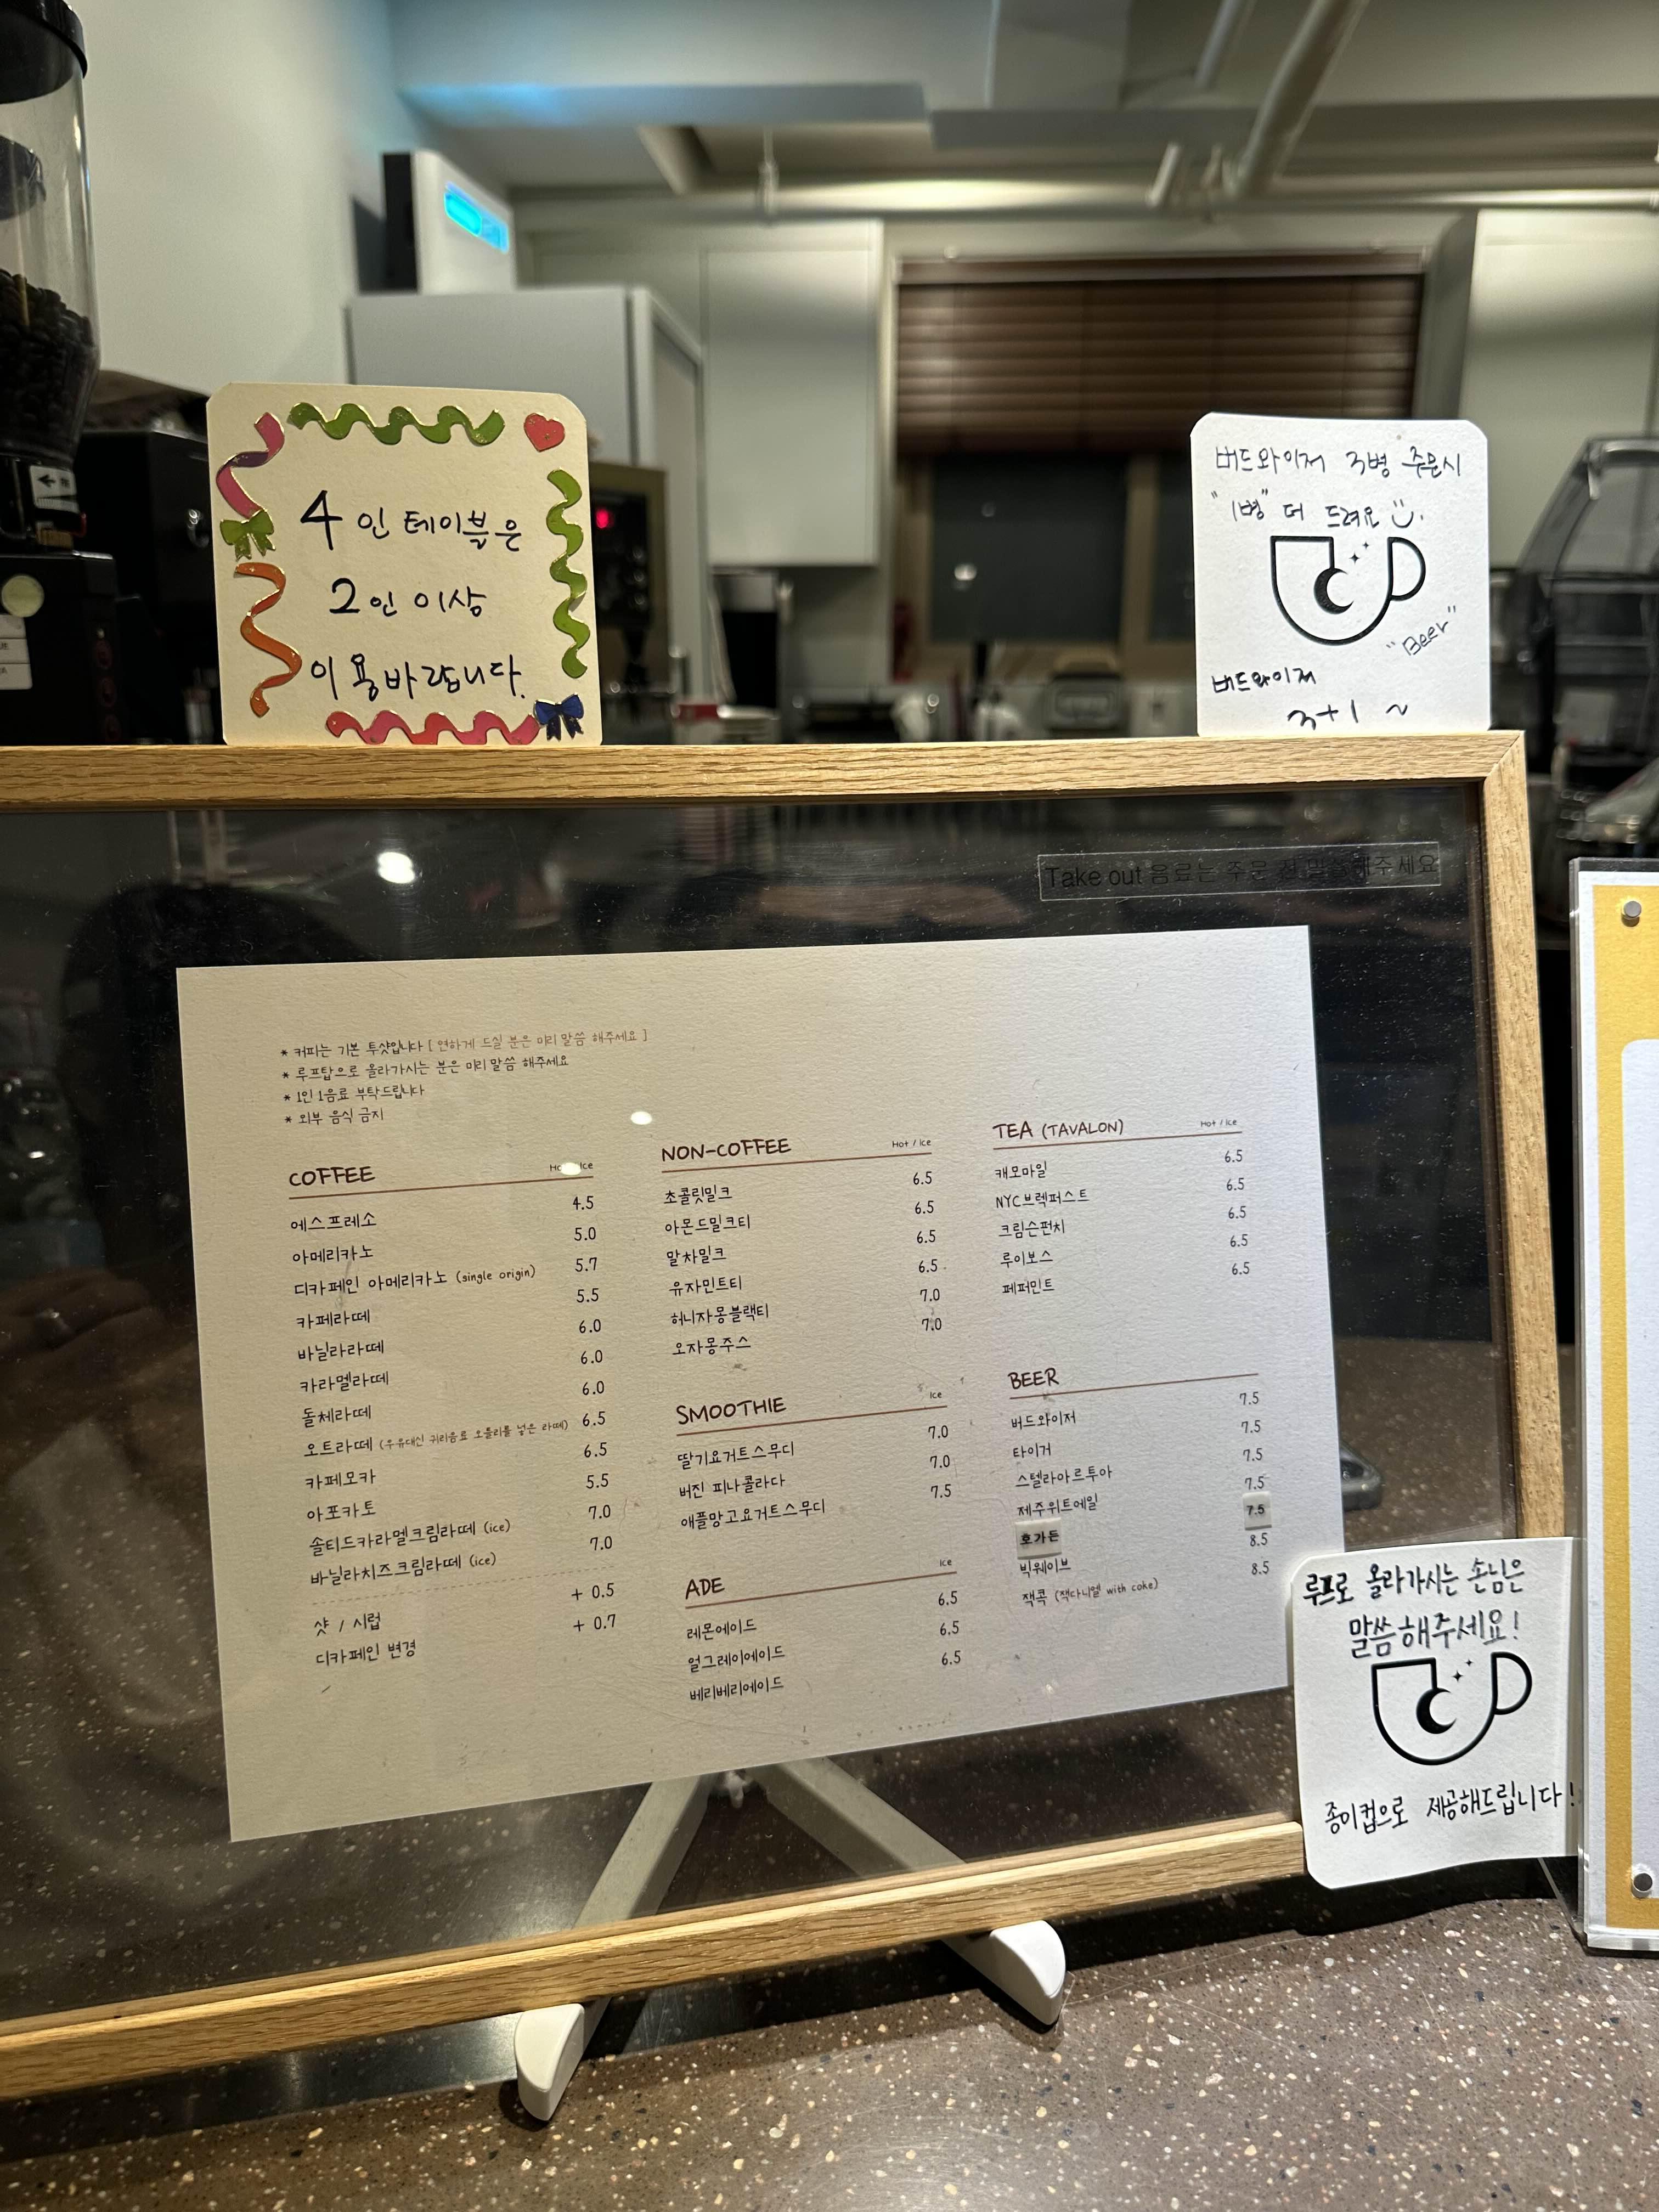 4인 테이블은
2인 이상
이용바랍니다.
버드와이저 3병 주문시
"1병" 더 드려요
"Beer"
버드와이저
3+1 ~
Take out 음료는 주문 전 말씀해주세요
* 커피는 기본 투샷입니다 [ 연하게 드실 분은 미리 말씀 해주세요 ]
* 루프탑으로 올라가시는 분은 미리 말씀 해주세요
* 1인 1음료 부탁드립니다
* 외부 음식 금지
COFFEE Hot / Ice
에스프레소 4.5
아메리카노 5.0
디카페인 아메리카노 (single origin) 5.7
카페라떼 5.5
바닐라라떼 6.0
카라멜라떼 6.0
돌체라떼 6.0
오트라떼 (우유대신 귀리음료 오틀리를 넣은 라떼) 6.5
카페모카 6.5
아포카토 5.5
솔티드카라멜크림라떼 (ice) 7.0
바닐라치즈크림라떼 (ice) 7.0
샷 / 시럽 + 0.5
디카페인 변경 + 0.7
NON-COFFEE Hot / Ice
초콜릿밀크 6.5
아몬드밀크티 6.5
말차밀크 6.5
유자민트티 6.5
허니자몽블랙티 7.0
오자몽주스 7.0
SMOOTHIE Ice
딸기요거트스무디 7.0
버진 피나콜라다 7.0
애플망고요거트스무디 7.5
ADE Ice
레몬에이드 6.5
얼그레이에이드 6.5
베리베리에이드 6.5
TEA (TAVALON) Hot / Ice
캐모마일 6.5
NYC브렉퍼스트 6.5
크림슨펀치 6.5
루이보스 6.5
페퍼민트 6.5
BEER
버드와이저 7.5
타이거 7.5
스텔라아르투아 7.5
제주위트에일 7.5
호가든 7.5
빅웨이브 8.5
잭콕 (잭다니엘 with coke) 8.5
루프로 올라가시는 손님은
말씀해주세요!
종이컵으로 제공해드립니다!